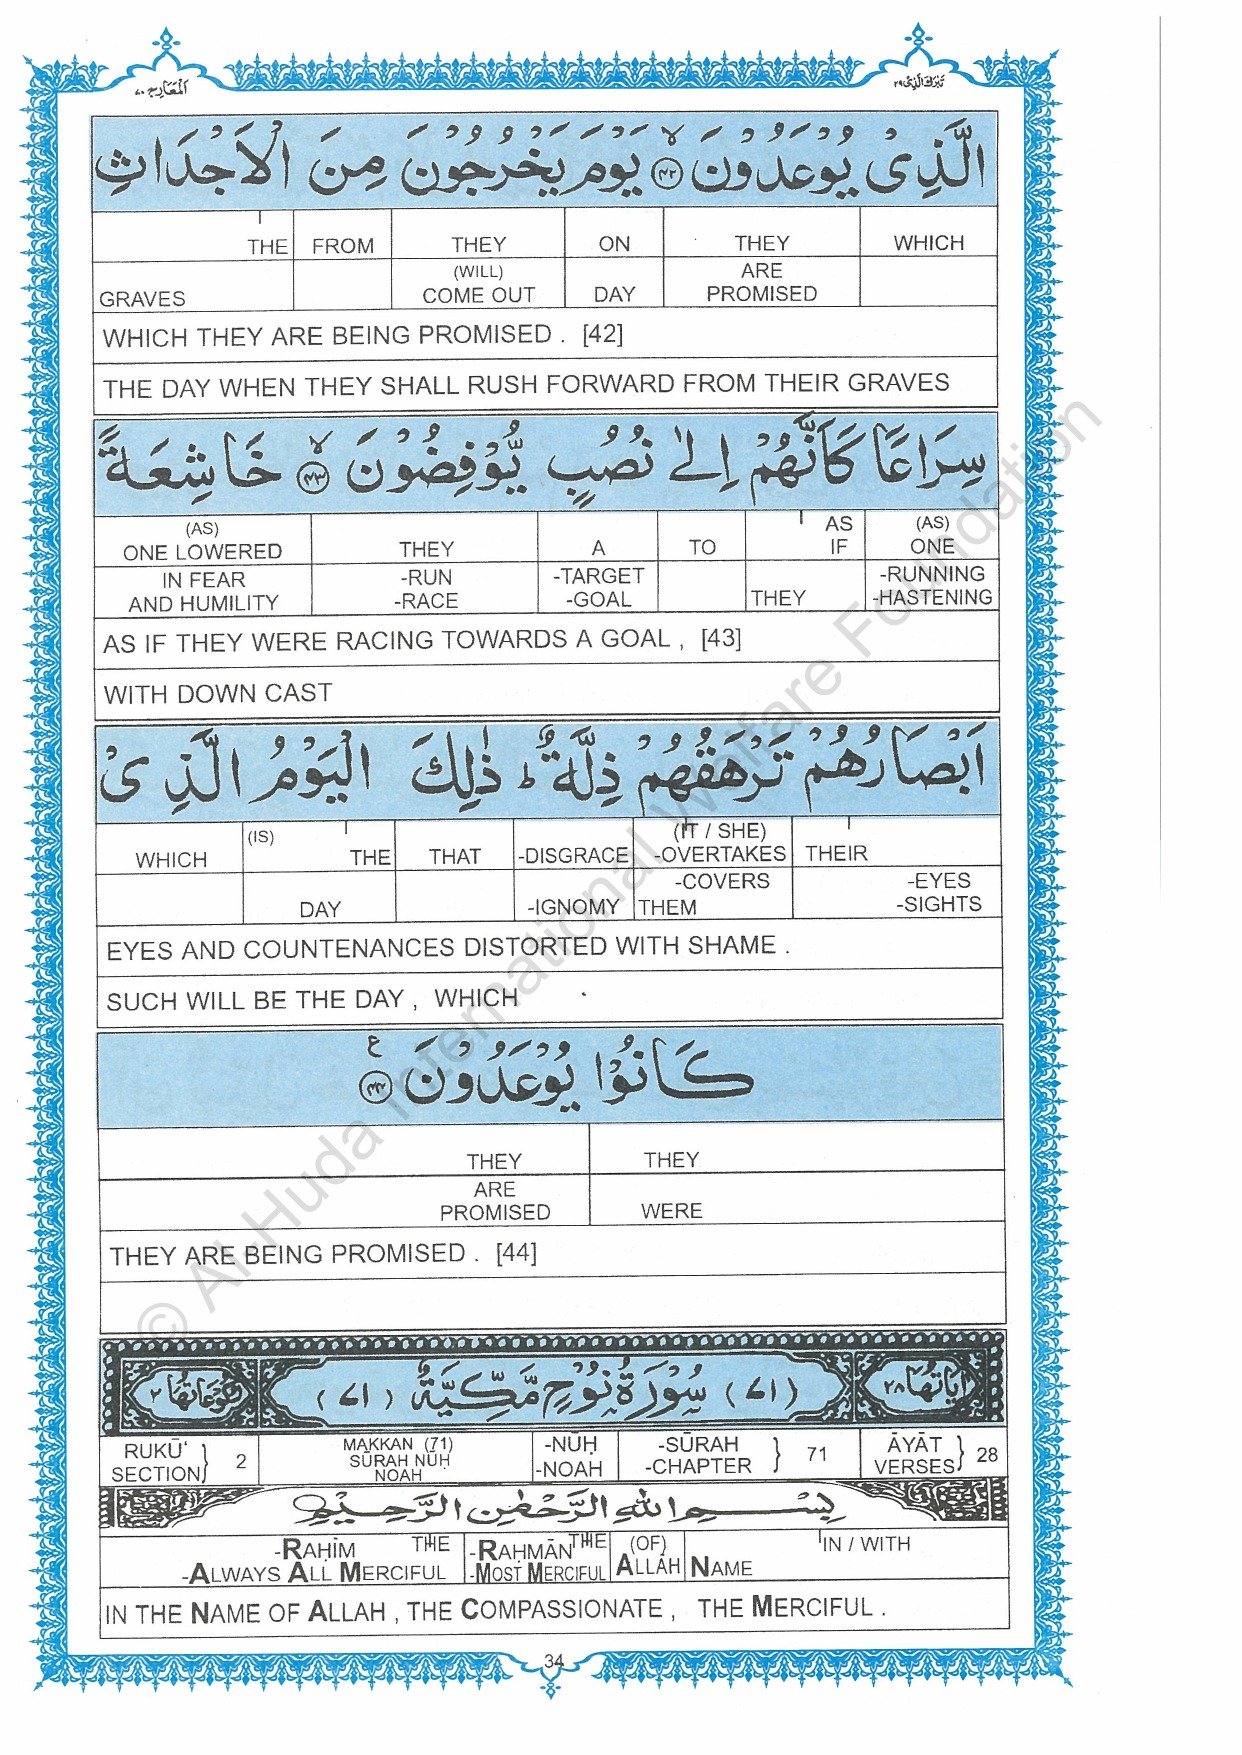 تبٰرك الذی ٢٩
المعارج ٧٠
الَّذِیْ یُوْعَدُوْنَ ﴿٤٢﴾ یَوْمَ یَخْرُجُوْنَ مِنَ الْاَجْدَاثِ
THE FROM THEY ON THEY WHICH
(WILL) ARE
GRAVES COME OUT DAY PROMISED
WHICH THEY ARE BEING PROMISED . [42]
THE DAY WHEN THEY SHALL RUSH FORWARD FROM THEIR GRAVES
سِرَاعًا كَاَنَّهُمْ اِلٰی نُصُبٍ یُّوْفِضُوْنَ ﴿٤٣﴾ خَاشِعَةً
(AS) AS (AS)
ONE LOWERED THEY A TO IF ONE
IN FEAR -RUN -TARGET -RUNNING
AND HUMILITY -RACE -GOAL THEY -HASTENING
AS IF THEY WERE RACING TOWARDS A GOAL , [43]
WITH DOWN CAST
اَبْصَارُهُمْ تَرْهَقُهُمْ ذِلَّةٌ ؕ ذٰلِكَ الْیَوْمُ الَّذِیْ
(IS) (IT / SHE)
WHICH THE THAT -DISGRACE -OVERTAKES THEIR
-COVERS -EYES
DAY -IGNOMY THEM -SIGHTS
EYES AND COUNTENANCES DISTORTED WITH SHAME .
SUCH WILL BE THE DAY , WHICH
كَانُوْا یُوْعَدُوْنَ ﴿٤٤﴾ ع
THEY THEY
ARE
PROMISED WERE
THEY ARE BEING PROMISED . [44]
اٰیاتها ٢٨ (٧١) سُوْرَةُ نُوْحٍ مَّكِّیَّةٌ (٧١) ركوعاتها ٢
RUKŪ‘ SECTION } 2 MAKKAN (71) SŪRAH NŪḤ NOAH -NŪḤ -NOAH -SŪRAH -CHAPTER } 71 ĀYĀT VERSES } 28
بِسْمِ اللهِ الرَّحْمٰنِ الرَّحِیْمِ
-RAḤĪM THE -RAḤMĀN THE (OF) IN / WITH
-ALWAYS ALL MERCIFUL -MOST MERCIFUL ALLĀH NAME
IN THE NAME OF ALLAH , THE COMPASSIONATE , THE MERCIFUL .
34
© Al-Huda International Welfare Foundation